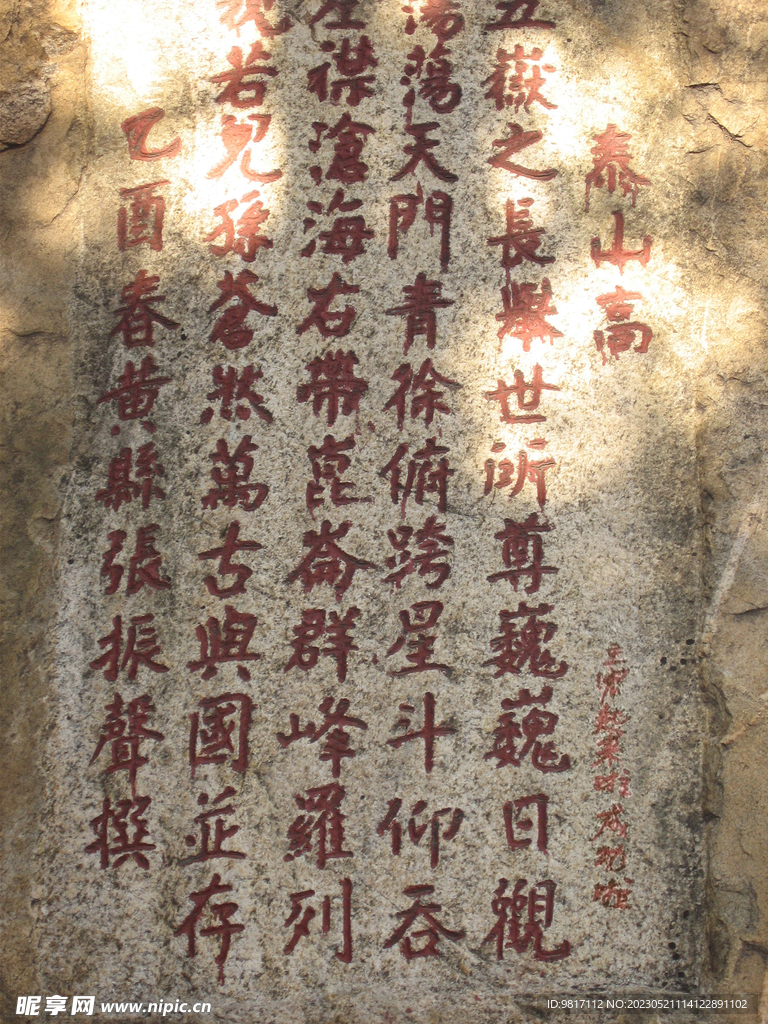 泰山高
五嶽之長舉世所尊巍巍日觀
蕩蕩天門青徐俯跨星斗仰吞
左襟滄海右帶崑崙群峰羅列
視若兒孫蒼然萬古與國並存
乙酉春黄縣張振聲撰
昵享网 www.nipic.cn
ID:9817112 NO:20230521114122891102